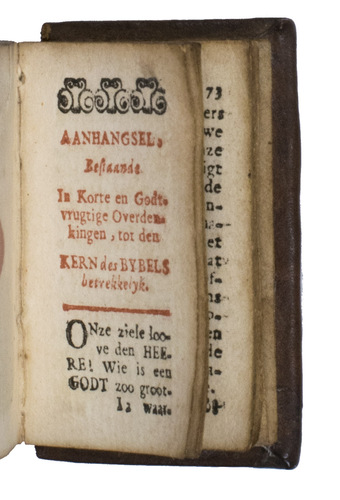 AANHANGSEL,
Bestaande
In Korte en Godt-
vrugtige Overden-
kingen, tot den
KERN des BYBELS
betrekkelyk.
ONze ziele loo-
ve den HEE-
RE! Wie is een
GODT zoo groot.
I2 waar-
73
ers
we
ze
igt
de
n-
et